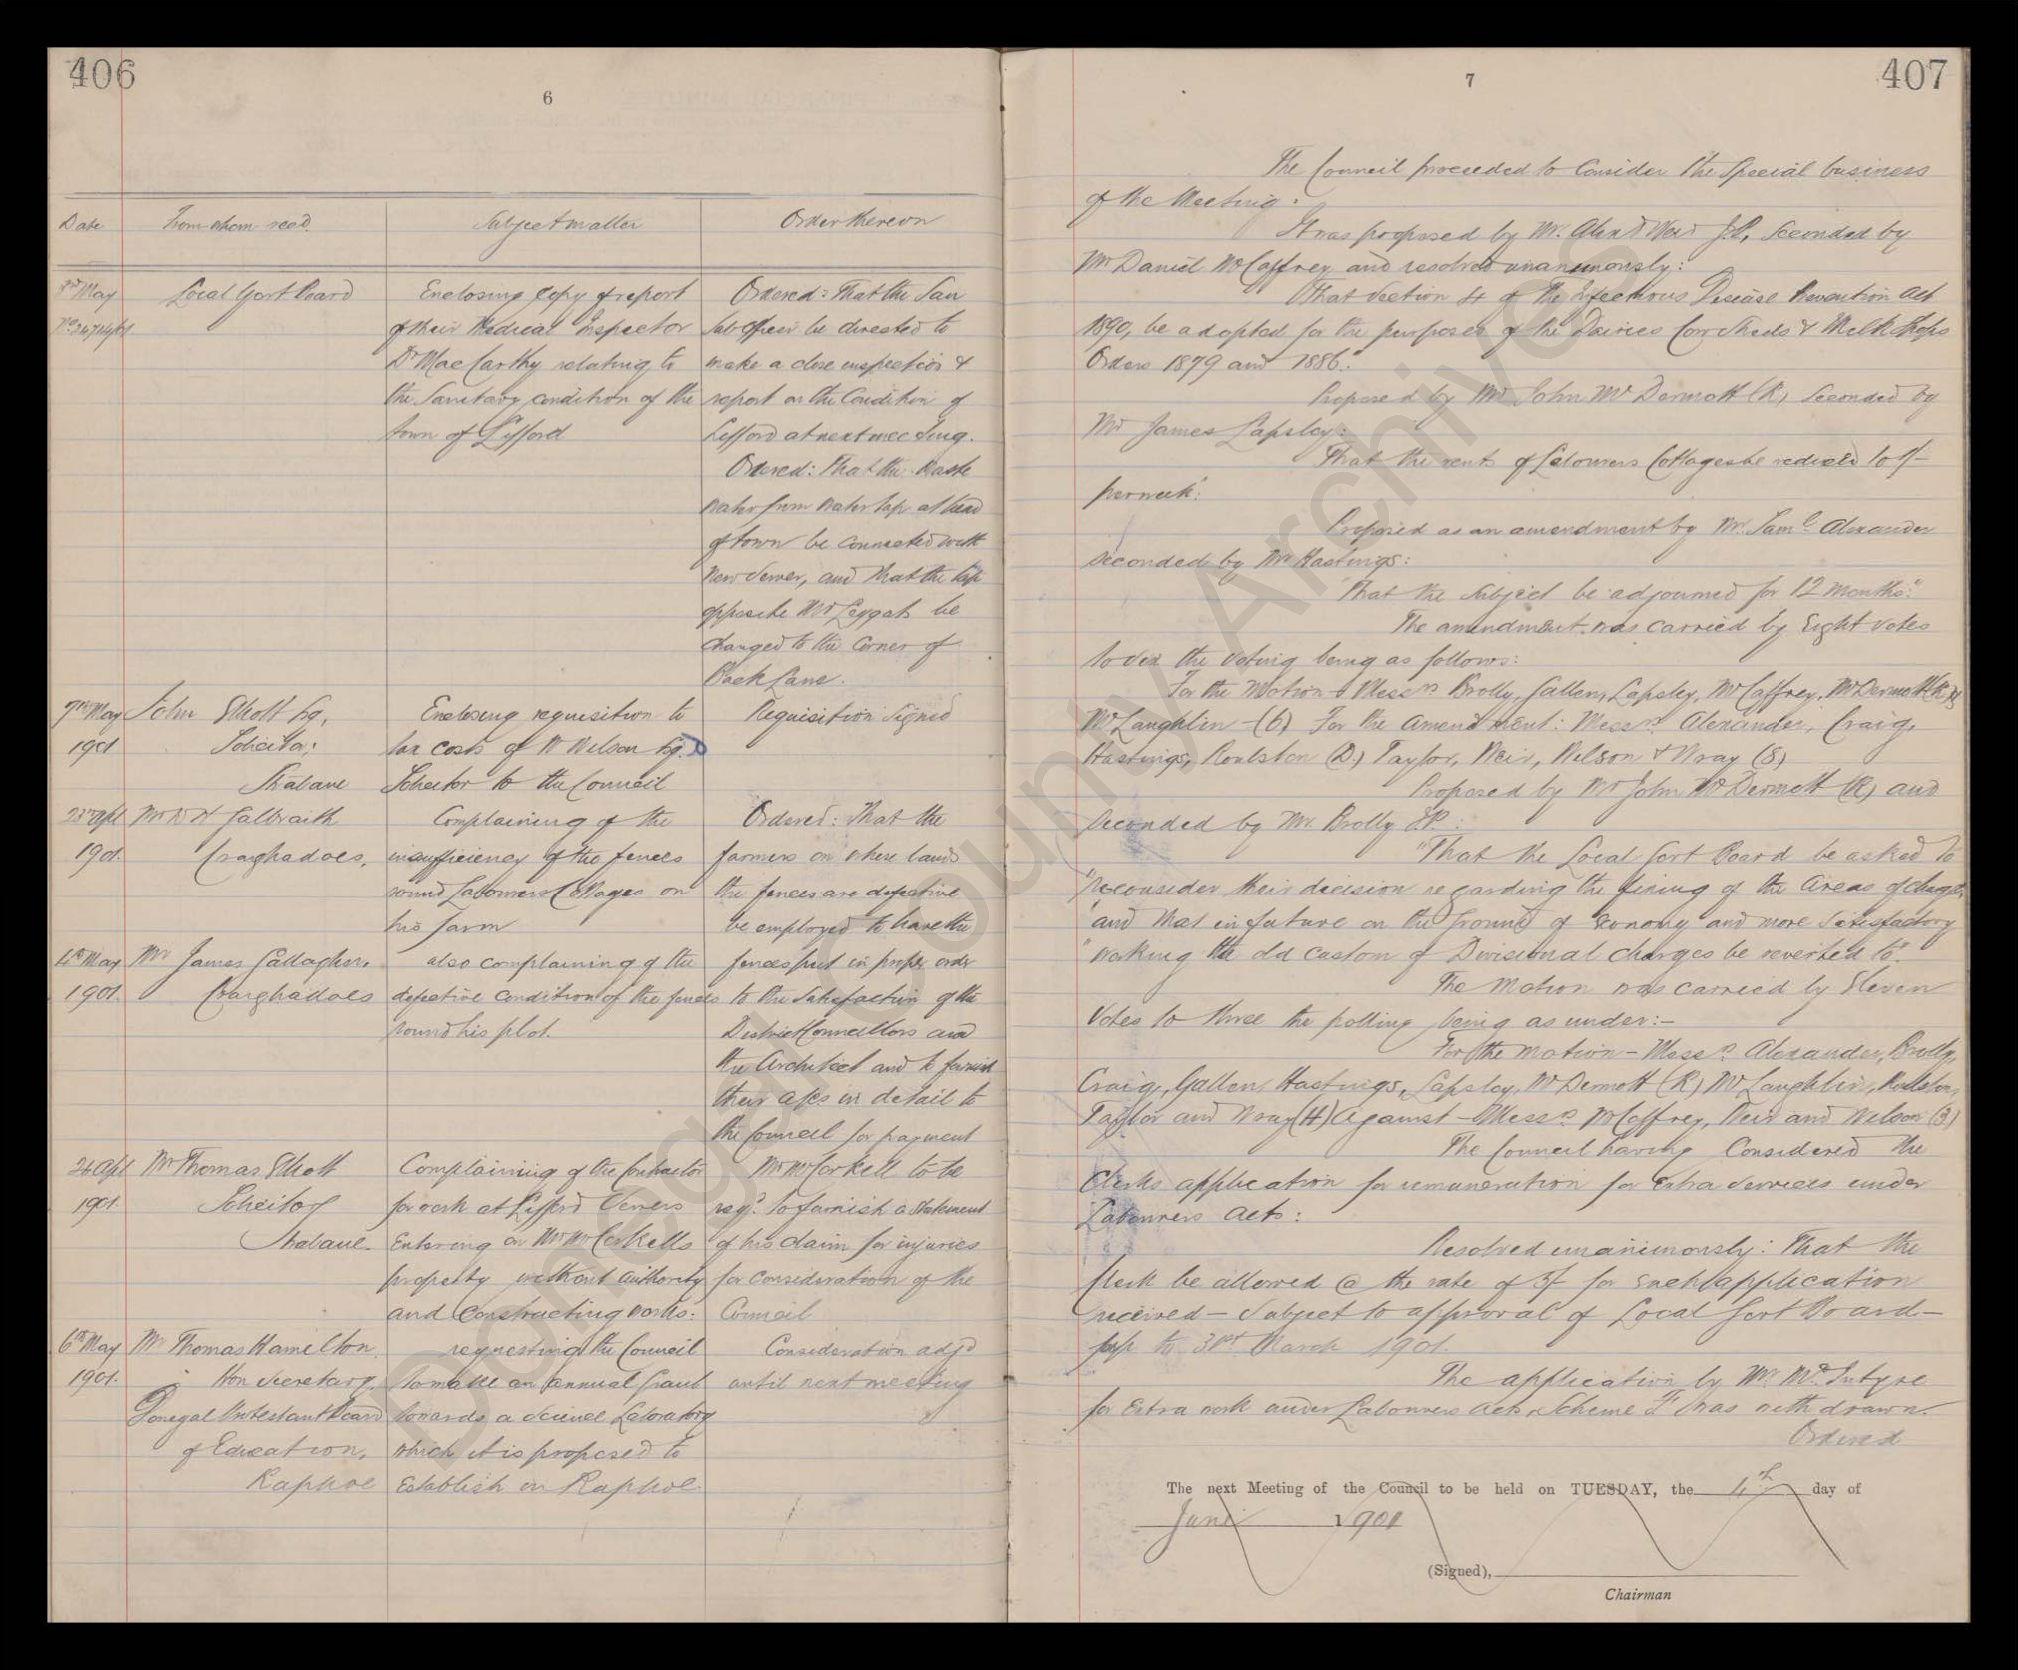 406
6
Date From whom recd. Subject matter Order thereon
May Local Govt Board Enclosing copy of report Ordered: That the San
of their Medical Inspector Sub Officer be directed to
Dr MacCarthy relating to make a close inspection &
the Sanitary condition of the report on the Condition of
town of Lifford Lifford at next meeting.
Ordered: That the waste
water from water tap at head
of town be connected with
new Sewer, and that the tap
opposite Mr Leggats be
changed to the Corner of
Back Lane.
7th May John Elliott Esq, Enclosing requisition to Requisition Signed
1901 Solicitor: tax costs of W Wilson Esq.
Strabane Solicitor to the Council
23rd Apl Mr D H Galbraith Complaining of the Ordered: That the
1901. Craighadoes, insufficiency of the fences farmers on whose lands
round Labourers Cottages on the fences are defective
his farm be employed to have the
4th May Mr James Gallagher, also complaining of the fences put in proper order
1901. Craighadoes defective condition of the fences to the Satisfaction of the
round his plot. District Councillors and
the Architect and to furnish
their a/cs in detail to
the Council for payment
Apl Mr Thomas Elliott Complaining of the Contractor Mr McCorkell to be
1901. Solicitor for work at Lifford Sewers reqd. to furnish a Statement
Strabane. Entering on Mr McCorkells of his claim for injuries
property without authority for consideration of the
and Constructing works: Council
6th May Mr Thomas Hamilton. requesting the Council Consideration adjd
1901. Hon Secretary, to make an annual Grant until next meeting
Donegal Protestant Board towards a Science Laboratory
of Education, which it is proposed to
Raphoe Establish in Raphoe.
407
7
The Council proceeded to Consider the Special business
of the Meeting:
It was proposed by Mr. Alexd Weir J.P, Seconded by
Mr Daniel McCaffrey and resolved unanimously:
"That Section 4 of the Infectious Disease Prevention Act
1890, be adopted for the purposes of the Dairies Cow Sheds & Milk Shops
Orders 1879 and 1886."
Proposed by Mr John McDermott (R) Seconded by
Mr James Lapsley:
"That the rents of Labourers Cottages be reduced to 1/-
per week".
Proposed as an amendment by Mr. Saml. Alexander
seconded by Mr Hastings:
"That the Subject be adjourned for 12 months".
The amendment was carried by Eight votes
to six the voting being as follows:
For the Motion - Messrs Brolly, Gallen, Lapsley, McCaffrey, McDermott (R) &
McLaughlin - (6) For the Amendment: Messrs. Alexander, Craig,
Hastings, Roulston (D.) Taylor, Weir, Wilson & Wray (8)
Proposed by Mr John McDermott (R) and
Seconded by Mr. Brolly J.P.:
"That the Local Govt Board be asked to
"reconsider their decision regarding the fixing of the Areas of charge,
"and that in future on the Ground of Economy and more Satisfactory
"working the old custom of Divisional charges be reverted to".
The Motion was carried by Eleven
Votes to three the polling being as under:-
For the motion - Messrs. Alexander, Brolly,
Craig, Gallen, Hastings, Lapsley, McDermott (R) McLaughlin, Roulston,
Taylor and Wray (11) Against - Messrs McCaffrey, Weir and Wilson (3)
The Council having Considered the
Clerks application for remuneration for Extra Services under
Labourers Acts:
Resolved unanimously: That the
Clerk be allowed @ the rate of 5/- for each application
received - Subject to approval of Local Govt Board -
up to 31st March 1901.
The application by Mr. McIntyre
for Extra work under Labourers Acts, Scheme F was withdrawn.
Ordered
The next Meeting of the Council to be held on TUESDAY, the 4th day of
June 1901
(Signed),
Chairman
Donegal County Archives